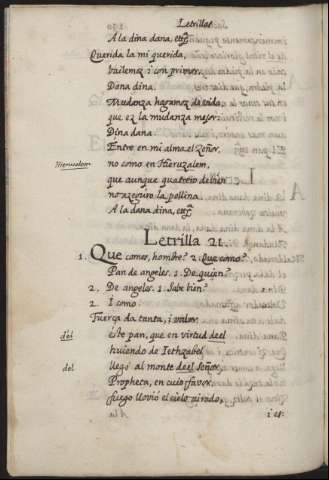 Letrillas
A la dina dana, etc
Querida la mi querida,
bailemos i con primor.
Dana dina.
Mudanza hagamos de vida,
que es la mudanza mejor.
Dina dana.
Entre en mi alma el Señor,
Hierusalem
no como en Hieruzalem,
que aunque de bien
no aseguro la pollina.
A la dana dina, etc
Letrilla 21.
1. Que comes, hombre? 2. Que como?
Pan de angeles. 1. De quien?
2. De angeles. 1. Sabe bien?
2. I como
Fuerça da tanta, i valor
del
este pan, que en virtud deel
huiendo de Iethzabel
del
llegó al monte deel Señor,
Propheta, en cuio favor
fuego llovió el cielo airado,
i es: